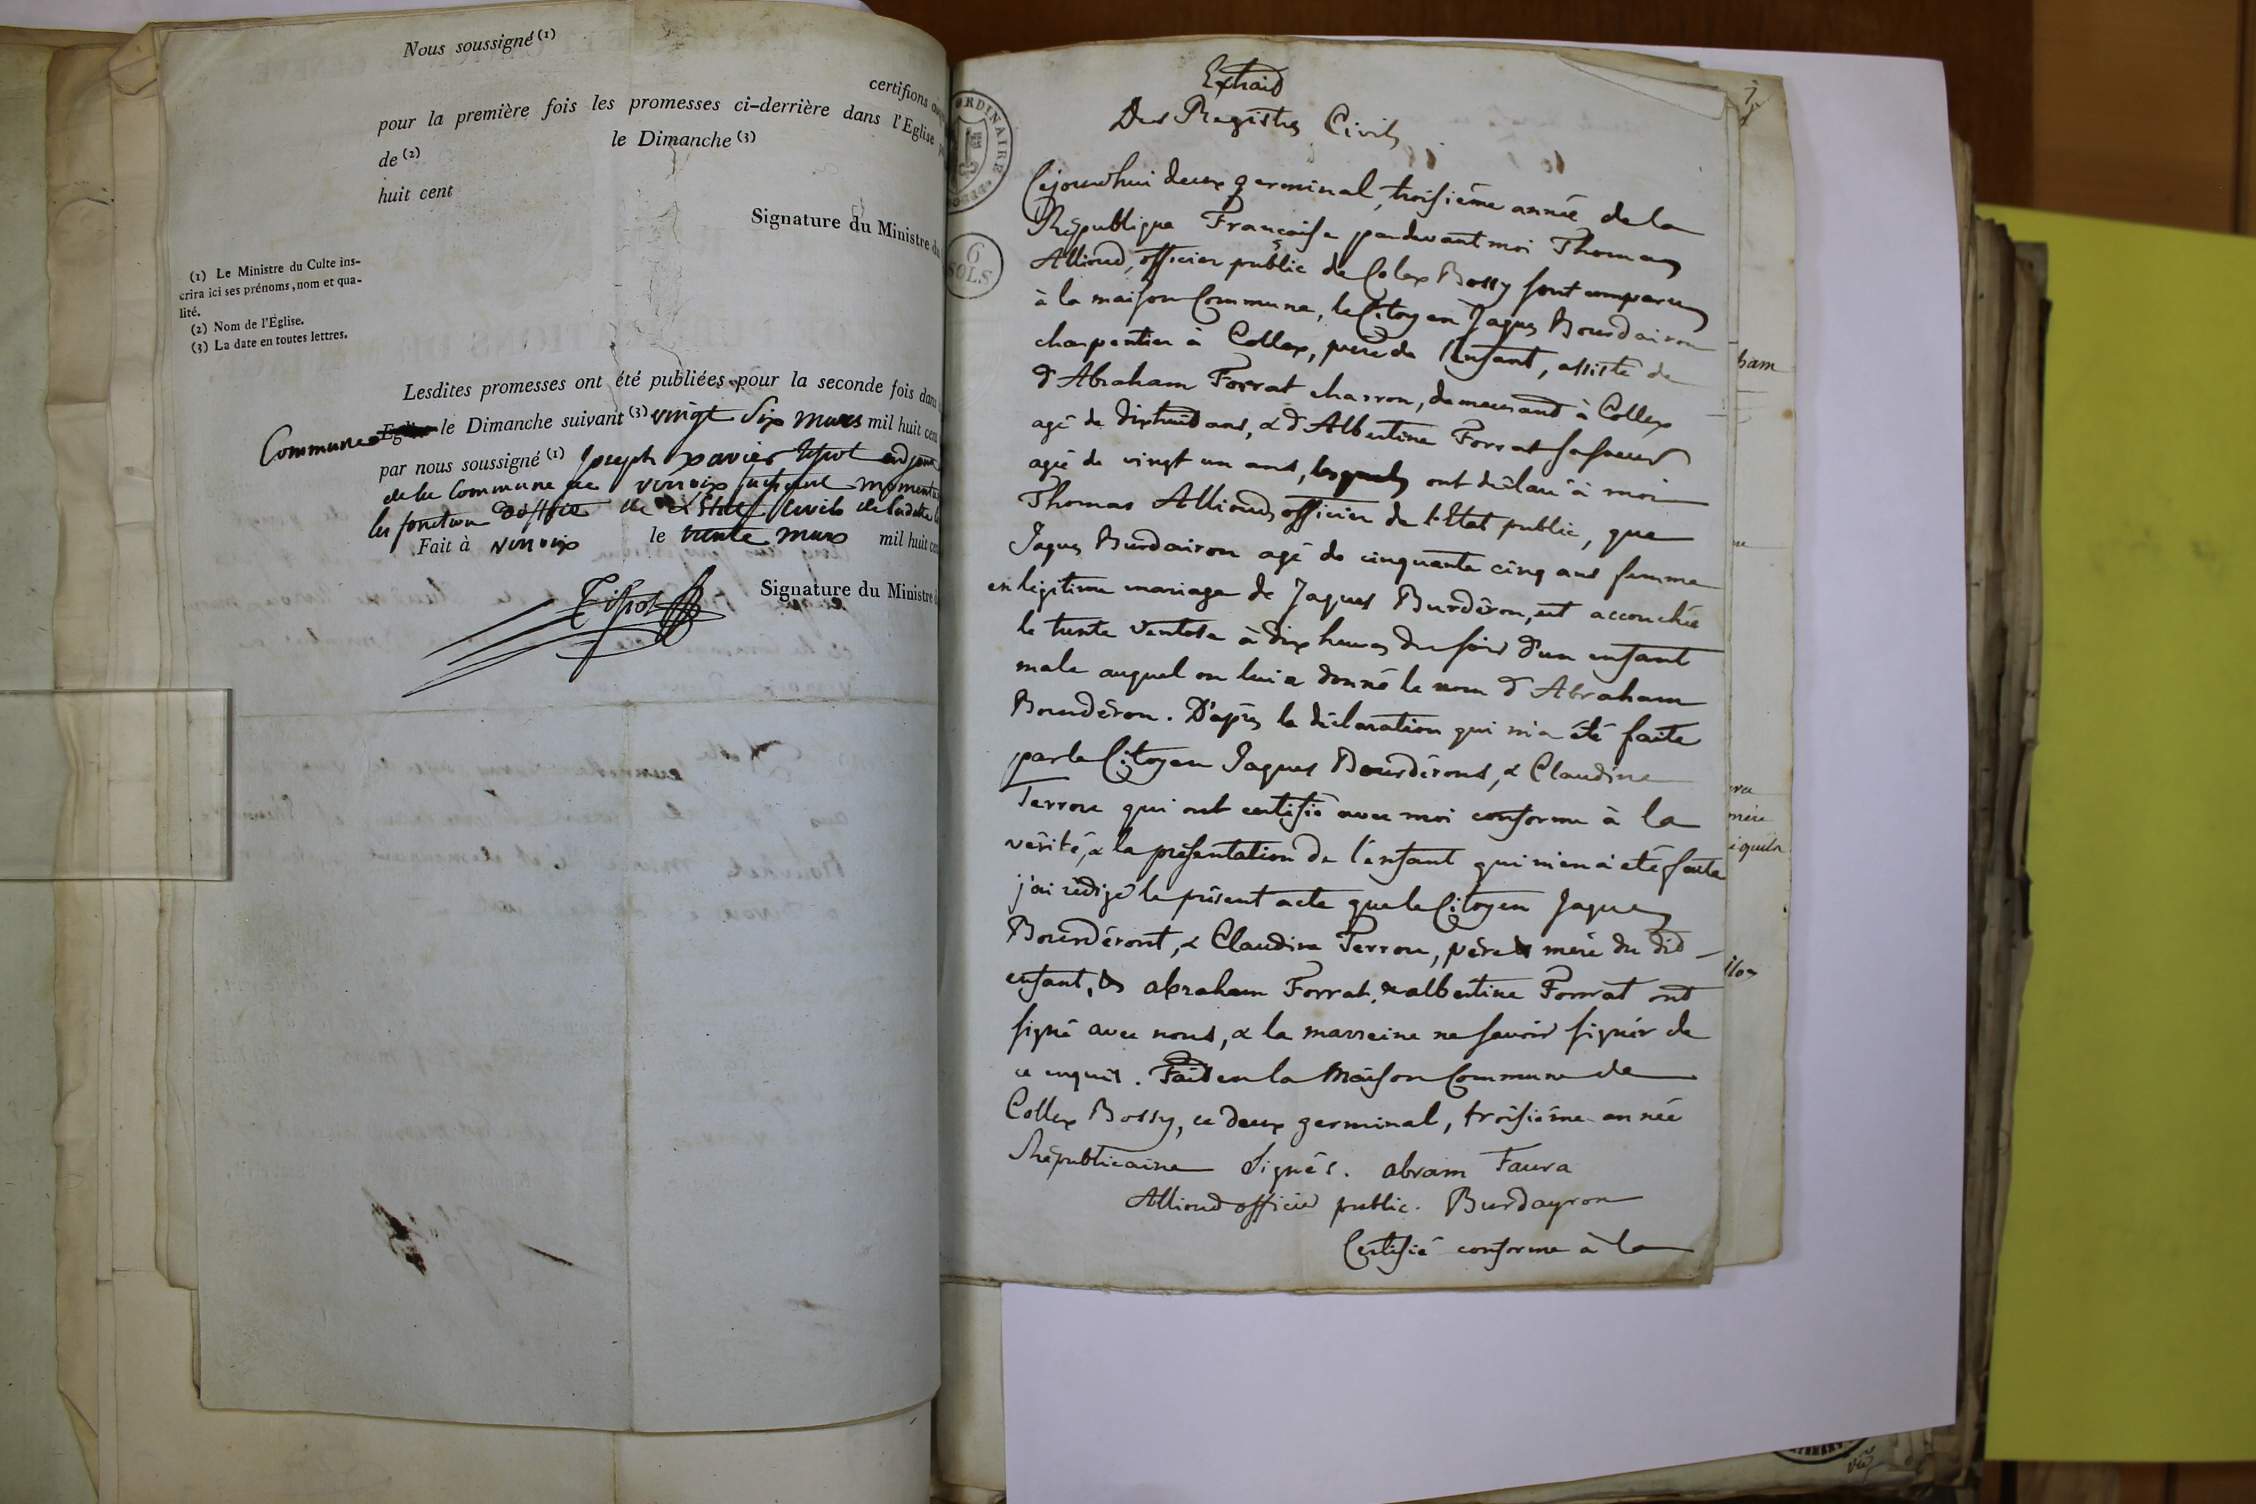 Nous soussigné (1)
certifions
pour la première fois les promesses ci-derrière dans l'Eglise
de (2) le Dimanche (3)
huit cent
Signature du Ministre du
(1) Le Ministre du Culte ins-
crira ici ses prénoms, nom et qua-
lité.
(2) Nom de l'Eglise.
(3) La date en toutes lettres.
Lesdites promesses ont été publiées pour la seconde fois dans
Commune le Dimanche suivant (3) vingt Six mars mil huit cent
par nous soussigné (1) Joseph xavier adjoint
de la Commune de
les fonction de civile de ladite
Fait à le trente mars mil huit cent
Signature du Ministre
ORDINAIRE
6
SOLS
Extrait
Des Registres Civils
Cejourdhui deux germinal, troisiéme année de la
République Française pardevant moi Thomas
Allioud, officier public de Colex Bossy sont comparus
à la maison Commune, le Citoyen Jaques Bourdairon
charpentier à Collex, pere de l'enfant, assisté de
d'Abraham Forrat charron, demeurant à Collex
agé de dixhuit ans, & d'Albertine Forrat sa soeur
agée de vingt un ans, lesquels ont déclaré à moi
Thomas Allioud, officier de l'Etat public, que
Jaques Burdairon agé de cinquante cinq ans femme
en légitime mariage de Jaques Burdéron, est accouchée
le trente Ventose à dix heures du soir d'un enfant
male auquel on lui a donné le nom d'Abraham
Bourdéron. D'après la déclaration qui m'a été faite
par le Citoyen Jaques Bourdérons, & Claudine
Terrou qui ont certifié avec moi conforme à la
vérité, & la présentation de l'enfant qui m'en a été faite
j'ai rédigé le présent acte que le Citoyen Jaques
Bourdéront, & Claudine Terrou, père & mere du dit
enfant, & abraham Forrat, & albertine Forrat ont
signé avec nous, & la marreine ne savoir signér de
ce enquis. Fait en la Maison Commune de
Collex Bossy, ce deux germinal, troisiéme année
Républicaine Signés. abram Faura
Allioud officier public. Burdayron
Certifié conforme à la
ham
mére